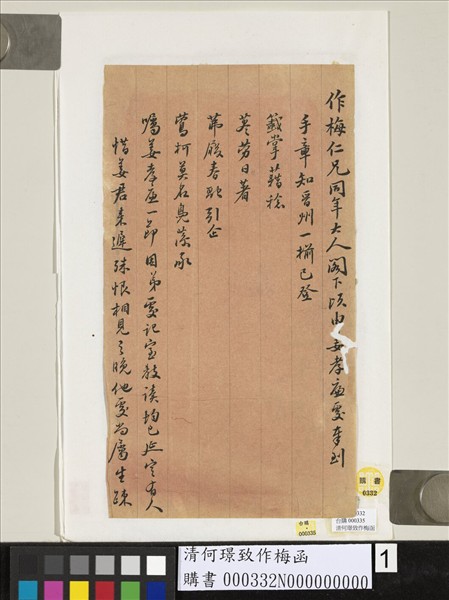 作梅仁兄同年大人閣下頃由姜孝庭處奉到
手章知晉州一摺已登
籤掌藉稔
荃勞日著
茀履春融引企
鶯柯莫名鳧藻承
囑姜孝庭一節因弟處記室教讀均已延定有人
惜姜君來遲殊恨相見之晚他處尚屬生疎
購書
0332
000332
台購 000335
清何璟致作梅函
台購
000335
清何璟致作梅函
購書 000332N000000000
1